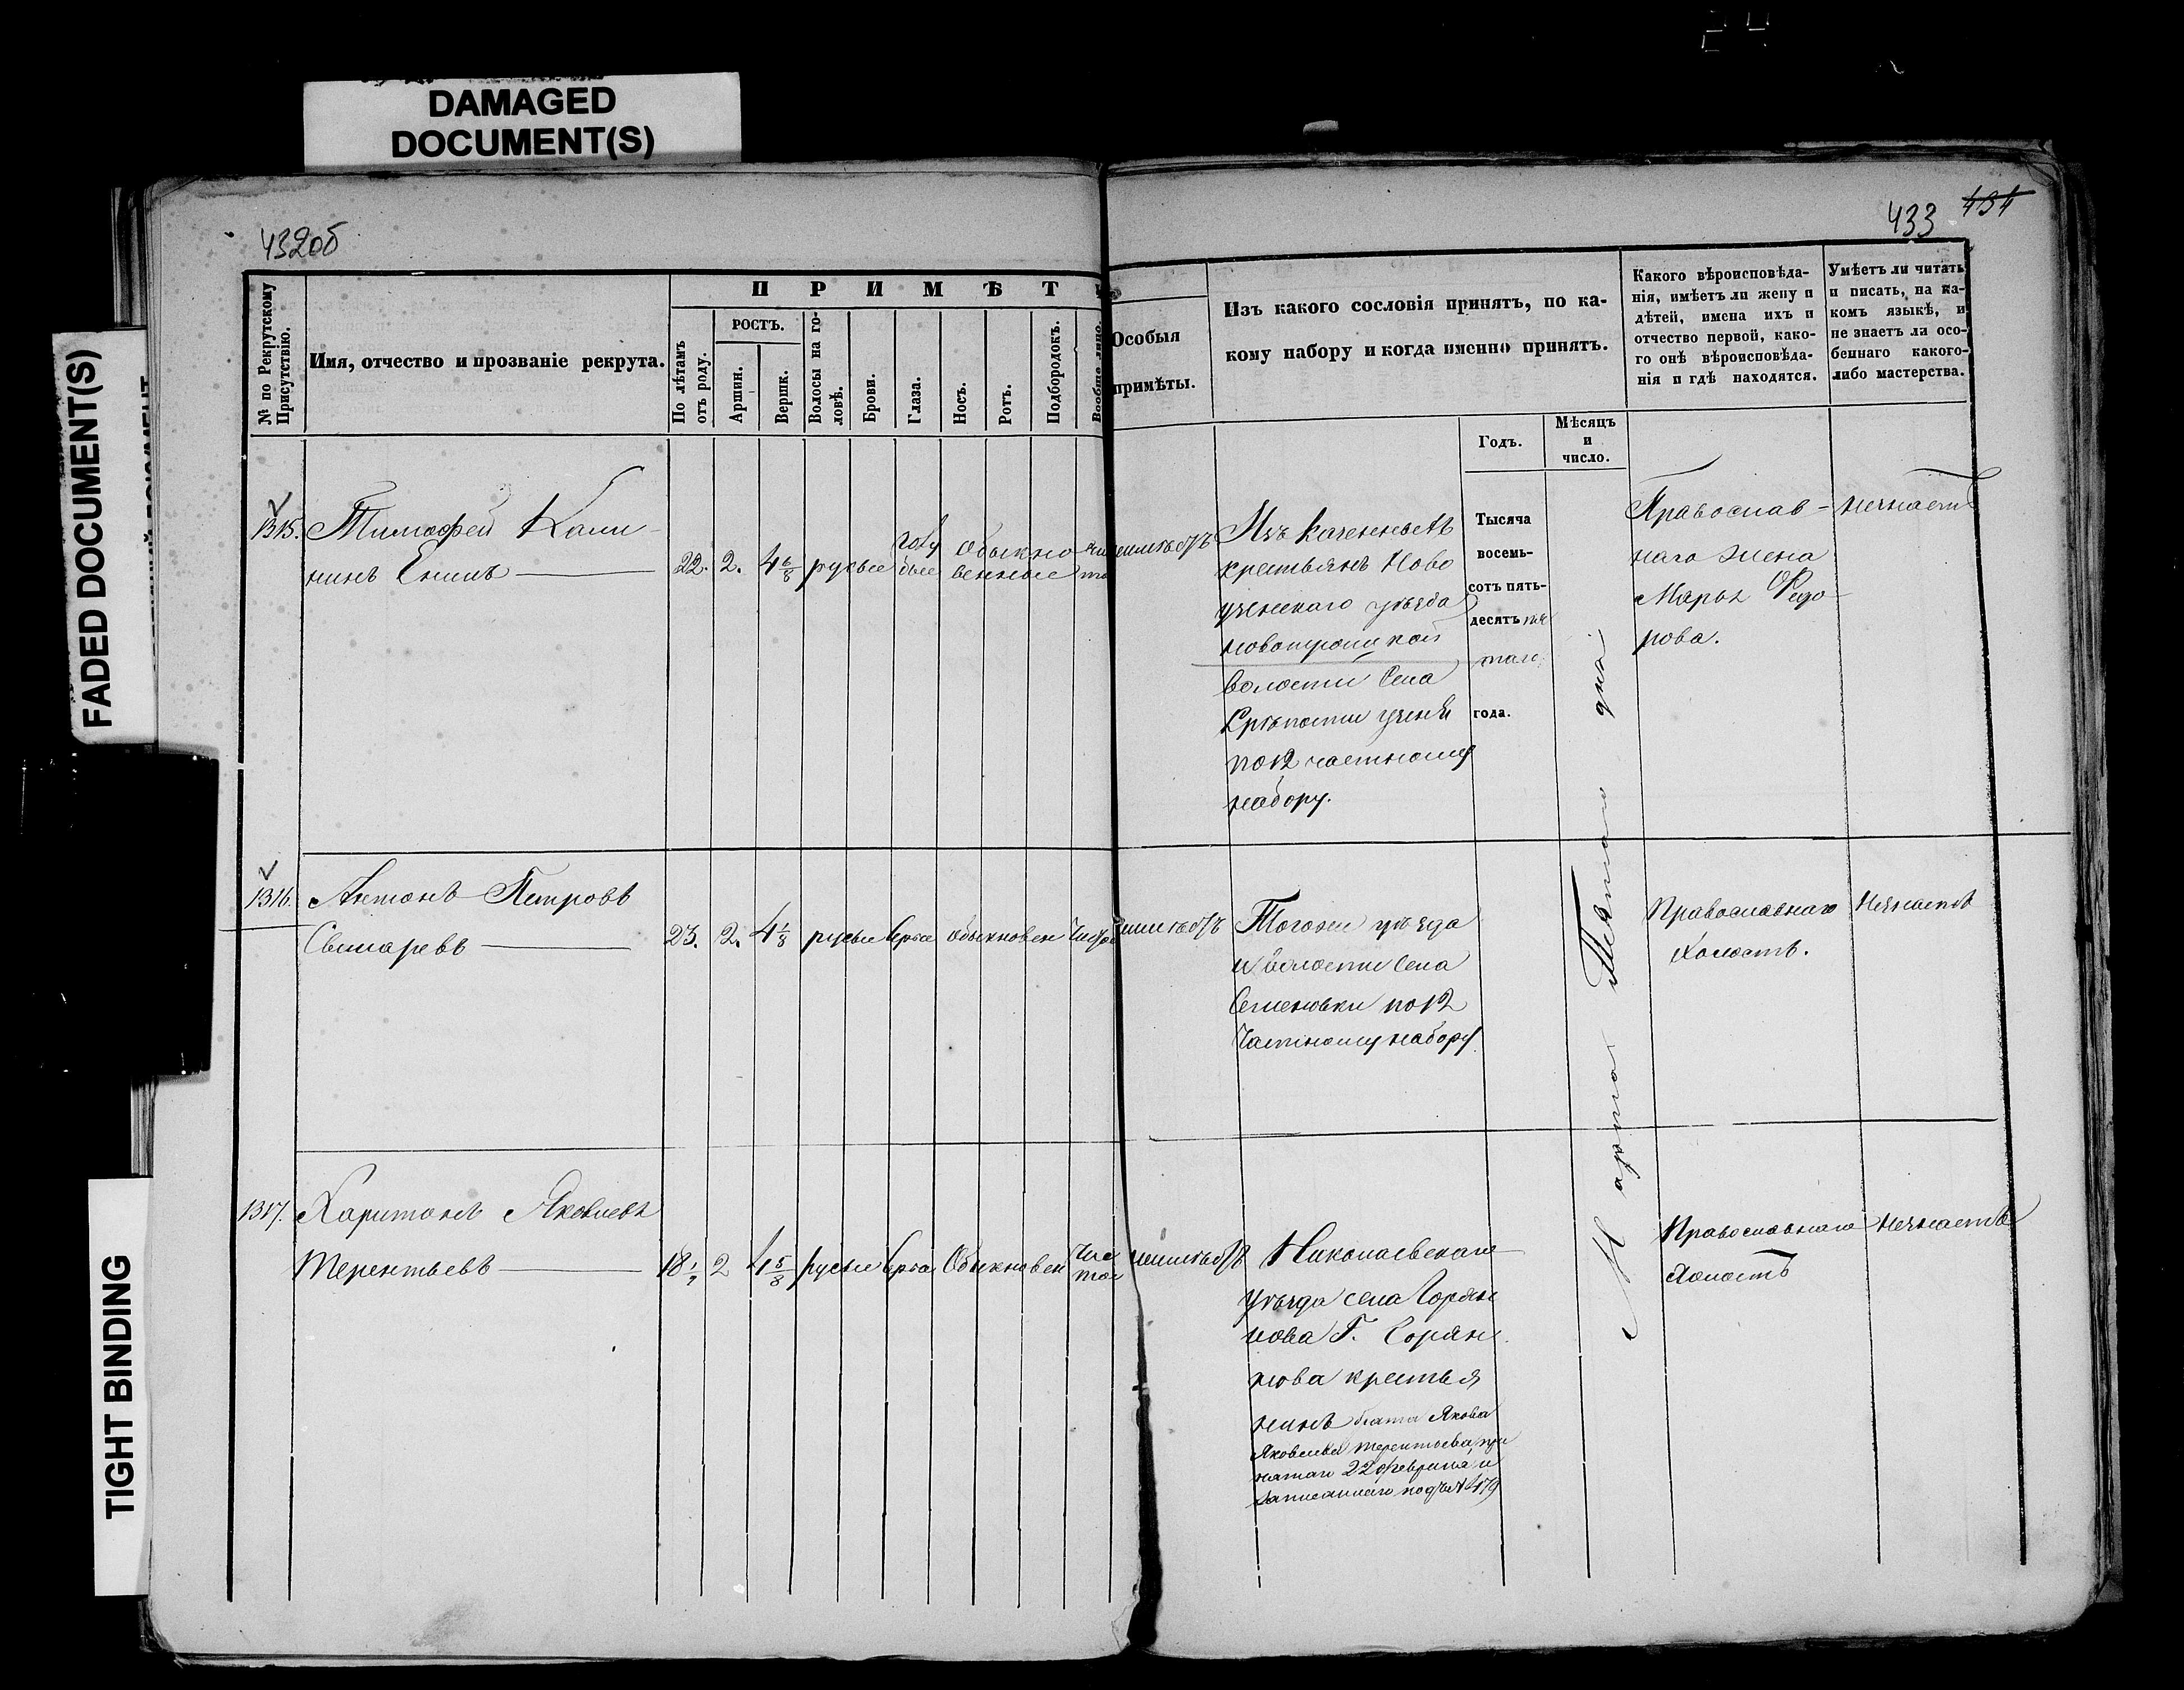 DAMAGED
DOCUMENT(S)
FADED DOCUMENT(S)
TIGHT BINDING
432об
433 434
№ по Рекрутскому
Присутствію.
Имя, отчество и прозваніе рекрута.
ПРИМѢТ
По лѣтамъ
отъ роду.
РОСТЪ.
Аршин.
Вершк.
Волосы на го-
ловѣ.
Брови.
Глаза.
Носъ.
Ротъ.
Подбородокъ.
Вообще лицо.
Особыя
примѣты.
Изъ какого сословія принятъ, по ка-
кому набору и когда именно принятъ.
Годъ.
Мѣсяцъ
и
число.
Какого вѣроисповѣда-
нія, имѣетъ ли жену и
дѣтей, имена ихъ и
отчество первой, како-
го онѣ вѣроисповѣда-
нія и гдѣ находятся.
Умѣетъ ли читать
и писать, на ка-
комъ языкѣ, и
не знаетъ ли осо-
беннаго какого-
либо мастерства.
1315. Тимофей Кали-
нинъ Енинъ
22. 2. 4 6/8 русые
голу
бые
Обыкно
венные
неимѣетъ
Изъ Казенныхъ
крестьянъ Ново
узенскаго уѣзда
новотроицкой
волости Села
Крѣпости узень
по 12 частному
набору.
Тысяча
восемь-
сотъ пять-
десятъ пя
таго
года.
Марта Пятаго дня.
Православ-
наго жена
Марья Федо-
рова.
незнаетъ
1316. Антонъ Петровъ
Свинаревъ
23. 2. 4 1/8 русые серые обыкновен
неимѣетъ
Тогоже уѣзда
и волости Села
Семеновки по 12
Частному набору
Православнаго
Холостъ.
Незнаетъ
1317. Харитонъ Яковлевъ
Терентьевъ
18 2 4 5/8 русые серые Обыкновен
Чис
тое
неимѣетъ
Николаевскаго
Уѣзда села Горяи
нова Г. Горяи
нова крестья
нинъ брата Якова
Яковлева Терентьева, при
нятаго 22 февраля и
записаннаго подъ № 479
Православнаго
Холостъ
незнаетъ